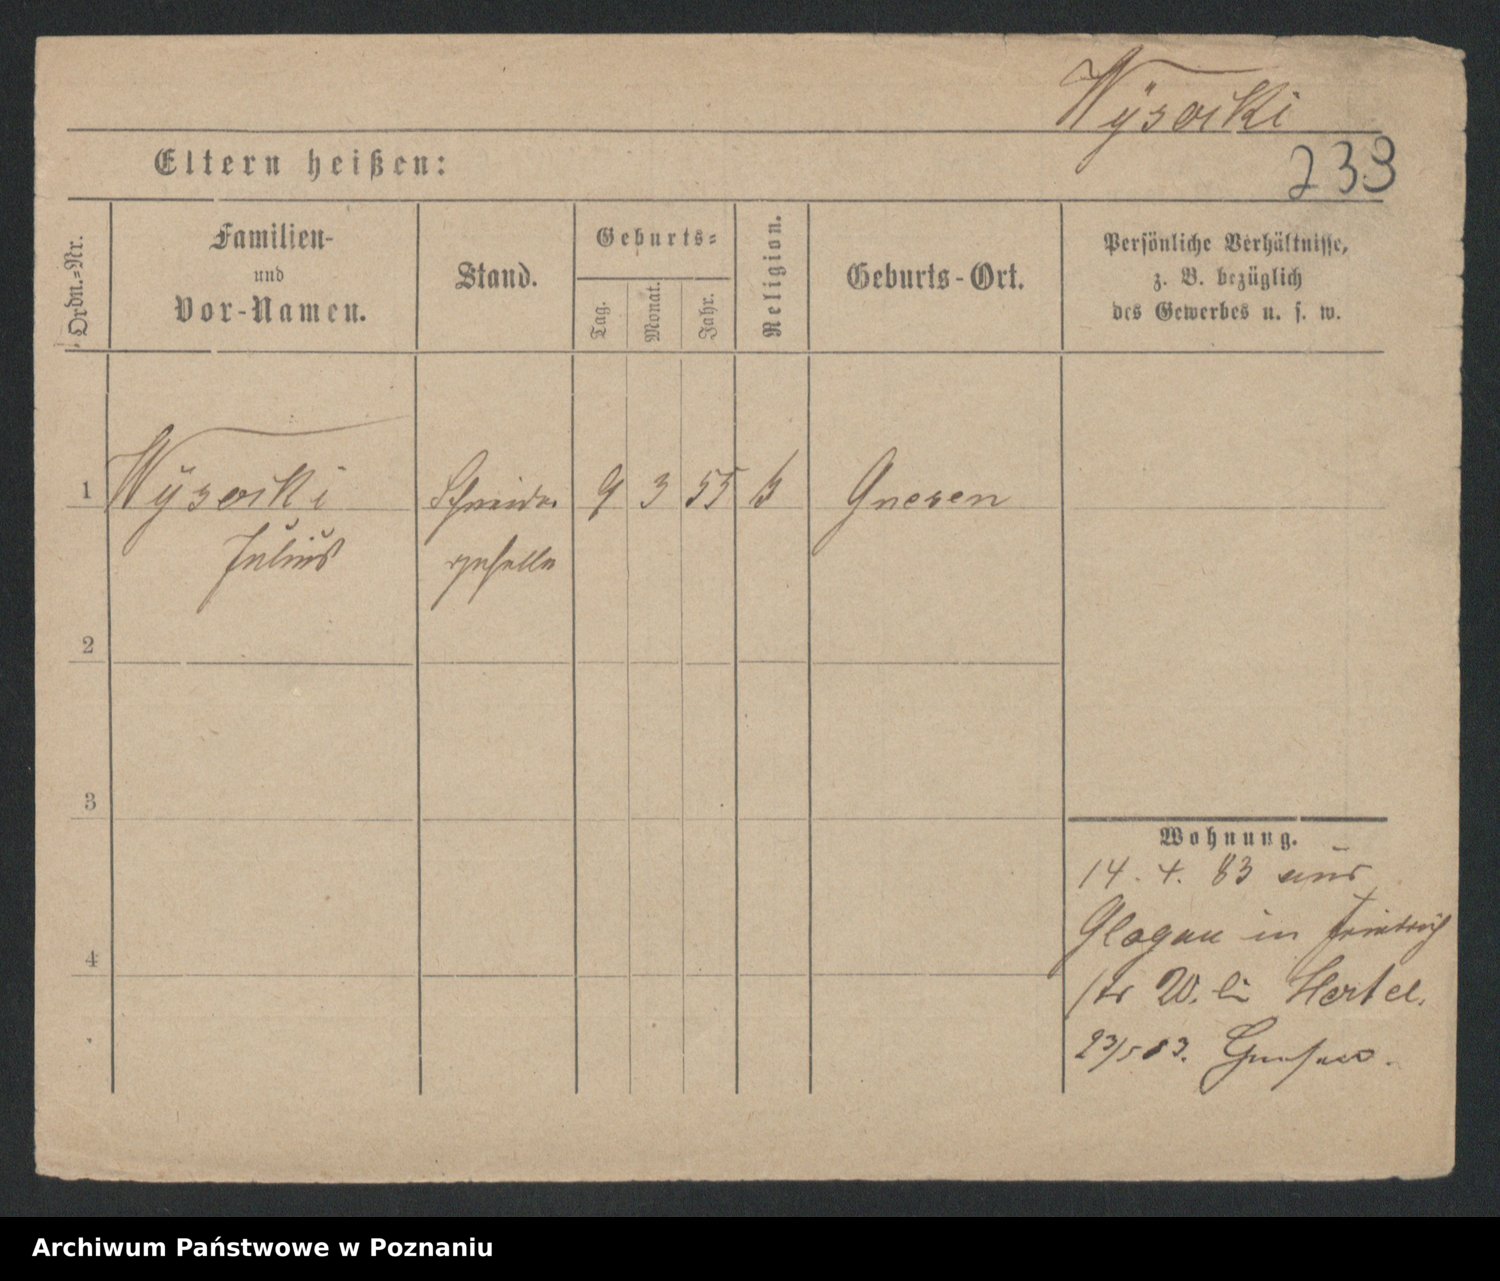 Wÿsocki
233
Eltern heißen:
Ordn.=Nr.
Familien-
und
Vor-Namen.
Stand.
Geburts=
Tag.
Monat.
Jahr.
Religion.
Geburts-Ort.
Persönliche Verhältnisse,
z. B. bezüglich
des Gewerbes u. s. w.
1
Wÿsocki
Julius
Schneider
geselle
9
3
55
Gnesen
2
3
4
Wohnung.
14. 4. 83 aus
Glogau in Friedrich
str 20. bei Hertel.
23/5 83. Gnesen.
Archiwum Państwowe w Poznaniu